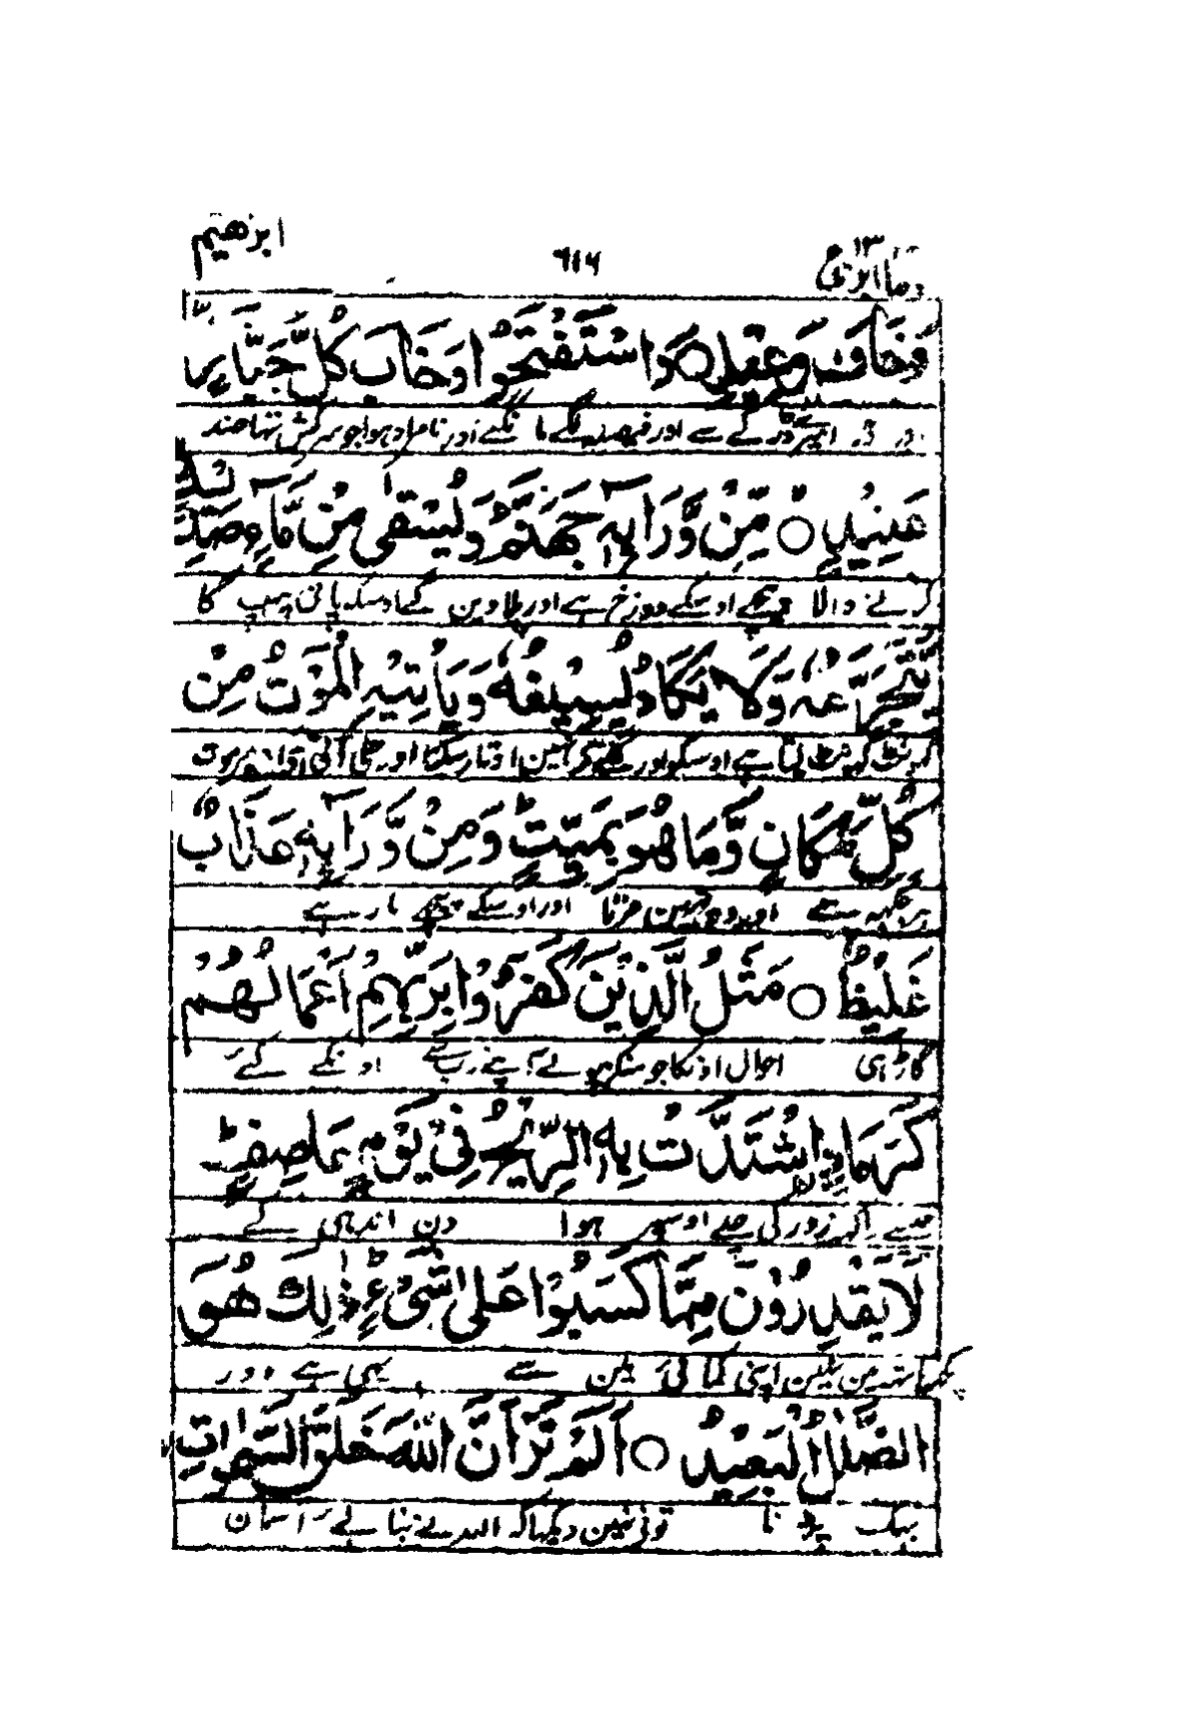 ابرٰهيم ٦١٦ وما ابرئ ١٣
وَخَافَ وَعِيْدِ ○ وَاسْتَفْتَحُوْا وَخَابَ كُلُّ جَبَّارٍ
اور ڈرا میرے ڈر کے سے اور فیصلہ لگے مانگنے اور نامراد ہوا جو سرکش تہا ضد
عَنِيْدٍ ○ مِّنْ وَّرَآىِٕهٖ جَهَنَّمُ وَيُسْقٰى مِنْ مَّآءٍ صَدِيْدٍ
کرنے والا پیچھے اوسکے دوزخ ہے اور پلاوین گے اوسکو پانی پیپ کا
يَّتَجَرَّعُهٗ وَلَا يَكَادُ يُسِيْغُهٗ وَيَاْتِيْهِ الْمَوْتُ مِنْ
گہونٹ گہونٹ لیتا ہے اوسکو اور گلے سے نہین اوتار سکتا اور چلی آتی اوسپر موت
كُلِّ مَكَانٍ وَّمَا هُوَ بِمَيِّتٍ ؕ وَمِنْ وَّرَآىِٕهٖ عَذَابٌ
ہر جگہہ سے اور وہ نہین مرتا اور اوسکے پیچھے مار ہے
غَلِيْظٌ ○ مَثَلُ الَّذِيْنَ كَفَرُوْا بِرَبِّهِمْ اَعْمَالُهُمْ
گاڑہی احوال اونکا جو منکر ہوئے اپنے رب سے اونکے کئے
كَرَمَادِ ِۨاشْتَدَّتْ بِهِ الرِّيْحُ فِيْ يَوْمٍ عَاصِفٍ ؕ
جیسے راکہہ زور کی چلے اوسپر ہوا دن اندہی کے
لَا يَقْدِرُوْنَ مِمَّا كَسَبُوْا عَلٰى شَيْءٍ ؕ ذٰلِكَ هُوَ
کچہہ ہاتہہ مین نہین اپنی کمائی مین سے یہی ہے دور
الضَّلٰلُ الْبَعِيْدُ ○ اَلَمْ تَرَ اَنَّ اللّٰهَ خَلَقَ السَّمٰوٰتِ
بہک پڑنا تونی نہین دیکہا کہ اللہ نے بنائے آسمان